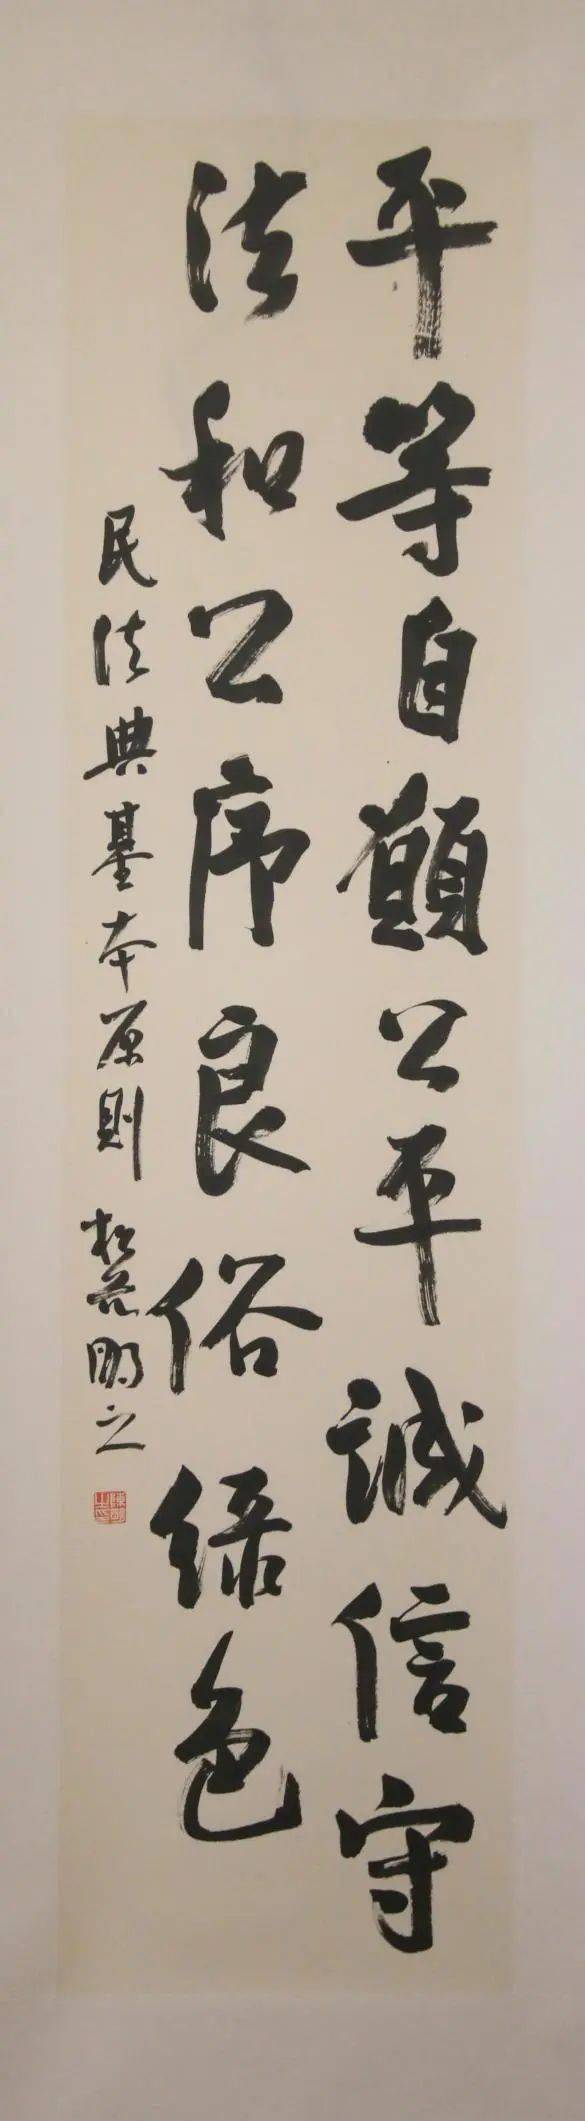 平等自願公平誠信守
法和公序良俗绿色
民法典基本原則 松茂明之